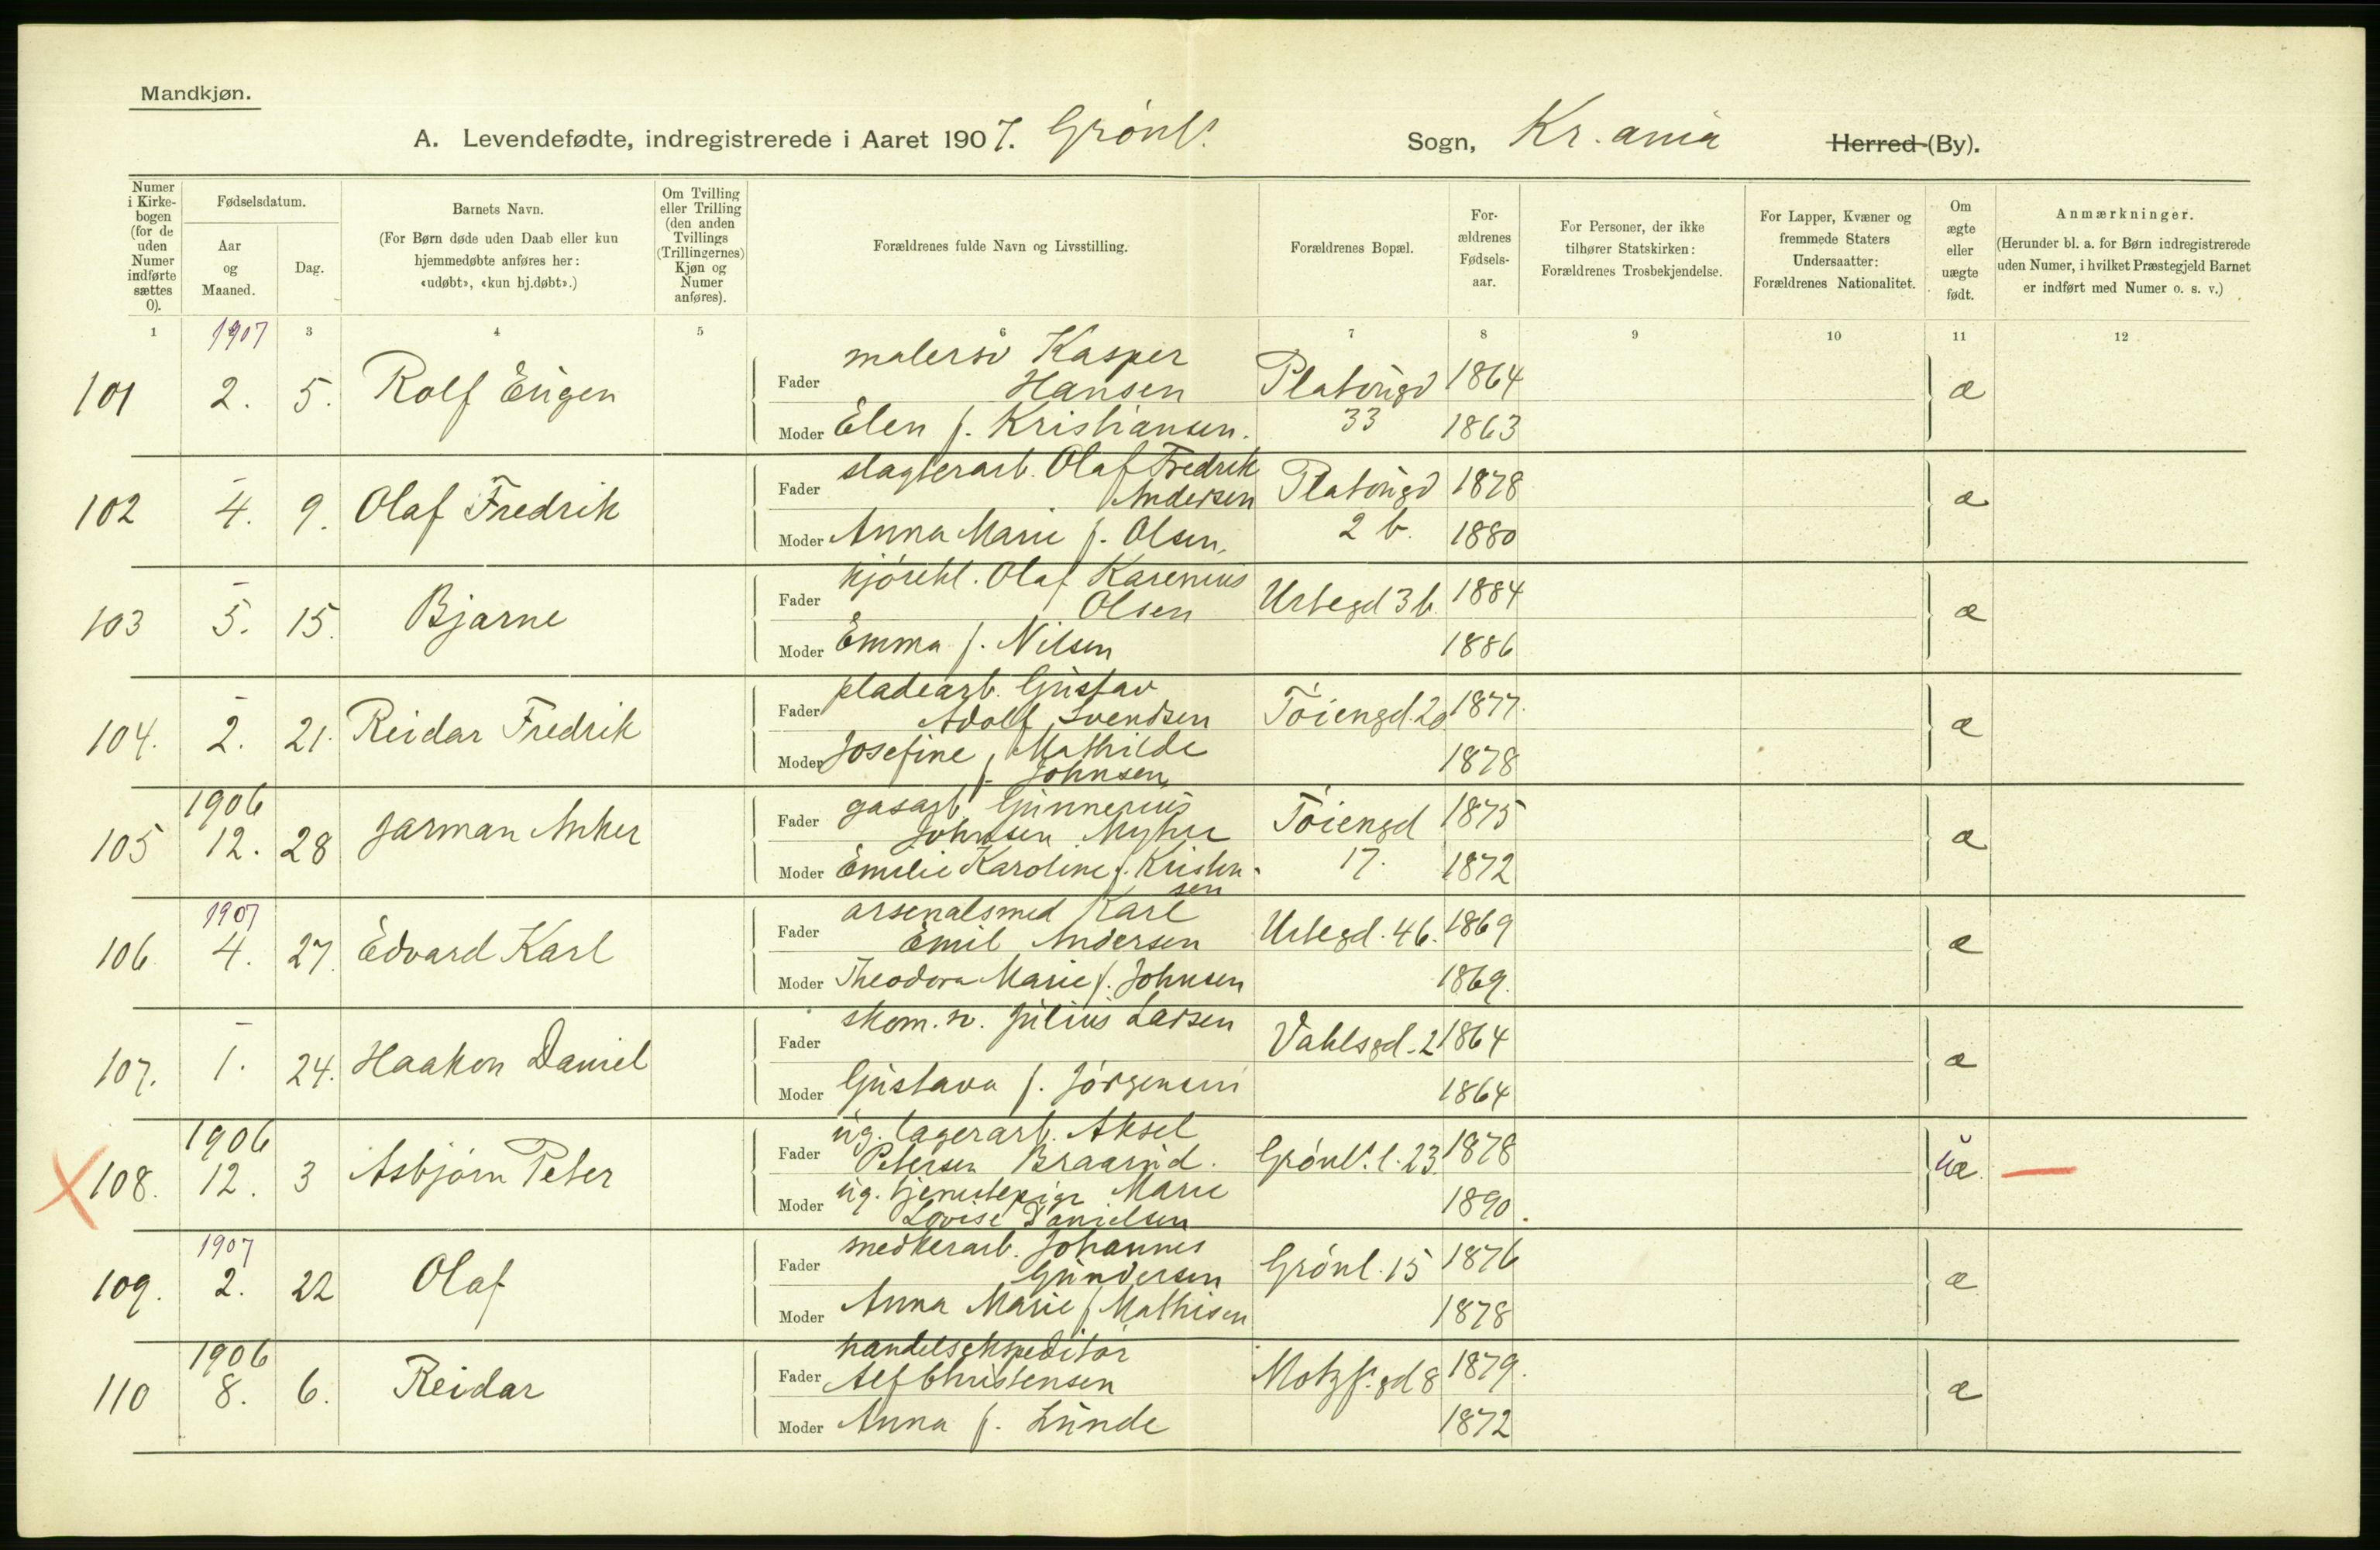 Mandkjøn.
A. Levendefødte, indregistrerede i Aaret 1907. Grønl. Sogn, Kr.ania Herred (By).
Numer i Kirkebogen (for de uden Numer indførte sættes 0).
Fødselsdatum.
Aar og Maaned.
Dag.
Barnets Navn.
(For Børn døde uden Daab eller kun hjemmedøbte anføres her: «udøbt», «kun hj.døbt».)
Om Tvilling eller Trilling (den anden Tvillings (Trillingernes) Kjøn og Numer anføres).
Forældrenes fulde Navn og Livsstilling.
Forældrenes Bopæl.
Forældrenes Fødselsaar.
For Personer, der ikke tilhører Statskirken: Forældrenes Trosbekjendelse.
For Lapper, Kvæner og fremmede Staters Undersaatter: Forældrenes Nationalitet.
Om ægte eller uægte født.
Anmærkninger.
(Herunder bl. a. for Børn indregistrerede uden Numer, i hvilket Præstegjeld Barnet er indført med Numer o. s. v.)
1 3 4 5 6 7 8 9 10 11 12
1907
101 2. 5. Rolf Eugen Fader malersv Kasper Hansen Platougd 1864 æ
Moder Elen f. Kristiansen. 33 1863
102 – 4. 9. Olaf Fredrik Fader slagterarb. Olaf Fredrik Andersen Platougd 1878 æ
Moder Anna Marie f. Olsen. 2 b. 1880
103 – 5. 15. Bjarne Fader kjørekl. Olaf Karenius Olsen Urtegd 3 b. 1884 æ
Moder Emma f. Nilsen 1886
104. – 2. 21. Reidar Fredrik Fader pladearb. Gustav Adolf Svendsen Tøiengd. 20 1877. æ
Moder Josefine Mathilde f. Johnsen 1878
105 1906 12. 28 Jarman Anker Fader gasarb. Gunnerius Johnsen Myhre Tøiengd 1875 æ
Moder Emilie Karoline f. Kristensen 17. 1872
106 1907 4. 27. Edvard Karl Fader arsenalsmed Karl Emil Andersen Urtegd. 46. 1869 æ
Moder Theodora Marie f. Johnsen 1869.
107. – 1. 24. Haakon Daniel Fader skom. sv. Julius Larsen Vahlsgd. 2 1864 æ
Moder Gustava f. Jørgensen 1864
108. 1906 12. 3 Asbjørn Peter Fader ug. lagerarb. Aksel Petersen Braarud. Grønl. l. 23. 1878 uæ. —
Moder ug. tjenestepige Marie Lovise Danielsen 1890.
109. 1907 2. 22 Olaf Fader snedkerarb. Johannes Gundersen Grønl. 15 1876 æ
Moder Anna Marie f. Mathisen 1878
110 1906 8. 6. Reidar Fader handelsekspeditør Alf Christensen Motzf. gd 8 1879. æ
Moder Anna f. Lunde 1872